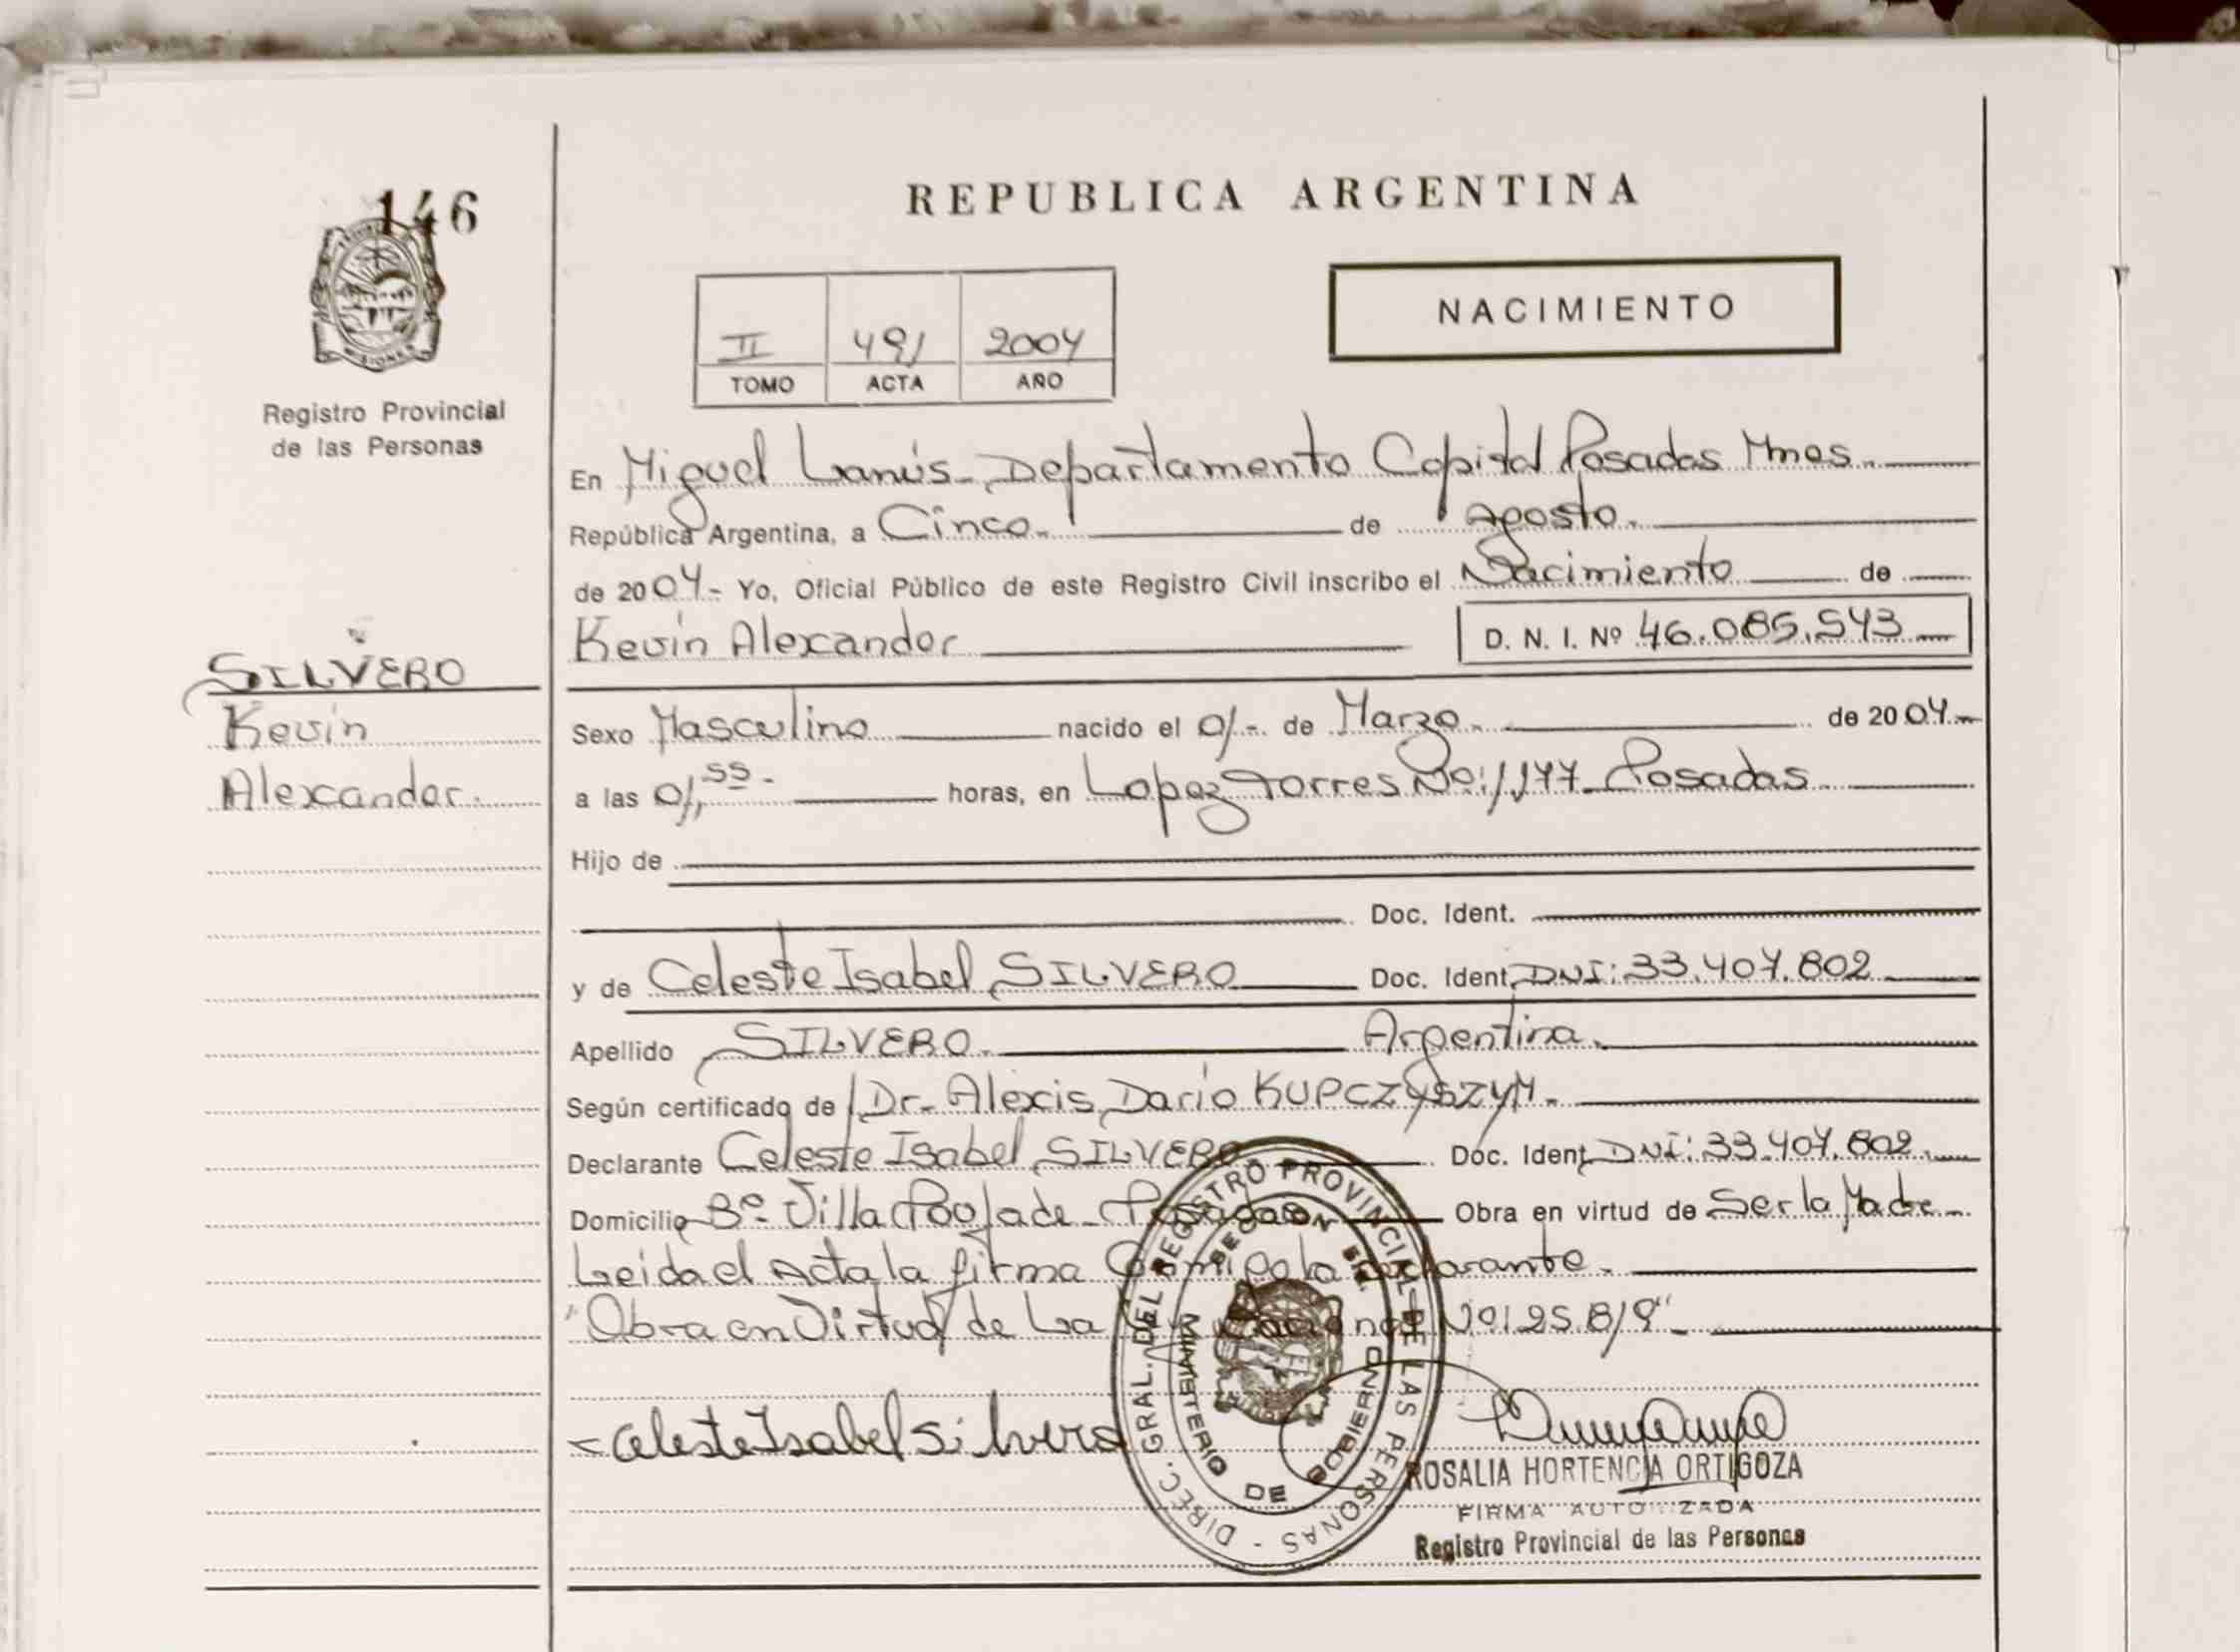 146
REPUBLICA ARGENTINA
NACIMIENTO
II 491 2004
TOMO ACTA AÑO
Registro Provincial
de las Personas
En Miguel Lanús - Departamento Capital Posadas Mnes.
República Argentina, a Cinco. de Agosto.
de 2004.- Yo, Oficial Público de este Registro Civil inscribo el Nacimiento de
Kevin Alexander D. N. I. Nº 46.085.543
SILVERO
Kevin
Alexander.
Sexo Masculino nacido el 01-. de Marzo. de 2004.
a las 01,55. horas, en Lopez Torres Nº: 1.177. Posadas.
Hijo de
Doc. Ident.
y de Celeste Isabel SILVERO Doc. Ident. DNI: 33.407.802
Apellido SILVERO. Argentina.
Según certificado de Dr. Alexis Dario KUPCZYSZYM.
Declarante Celeste Isabel SILVERO Doc. Ident. DNI: 33.407.802.
Domicilio Bº- Villa Poujade - Posadas Obra en virtud de Ser la Madre.
Leida el Acta la firma Conmigo la declarante.
"Obra en Virtud de La Ley Nacional Nº: 25.819".
Celeste Isabel Silvero
DIREC. GRAL. DEL REGISTRO PROVINCIAL DE LAS PERSONAS -
MINISTERIO DE GOBIERNO
ROSALIA HORTENCIA ORTIGOZA
FIRMA AUTORIZADA
Registro Provincial de las Personas